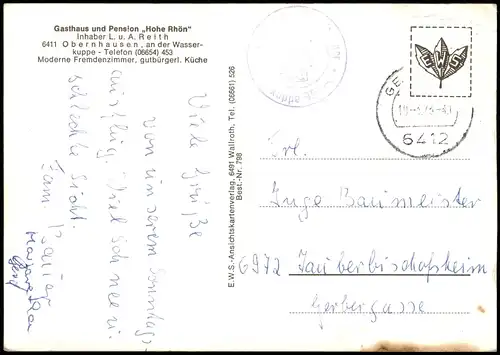 Gasthaus und Pension „Hohe Rhön"
Inhaber L. u. A. Reith
6411 Obernhausen, an der Wasser-
kuppe - Telefon (06654) 453
Moderne Fremdenzimmer, gutbürgerl. Küche
Viele Grüße
von unserem Sonntags-
ausflug. Viel Schnee u.
schlechte Sicht.
Fam.
E.W.S.-Ansichtskartenverlag, 6491 Wallroth, Tel. (06661) 526
Best.-Nr. 798
EWS
GE
6412
Frl.
Inge Baumeister
6972 Tauberbischofsheim
Gerbergasse